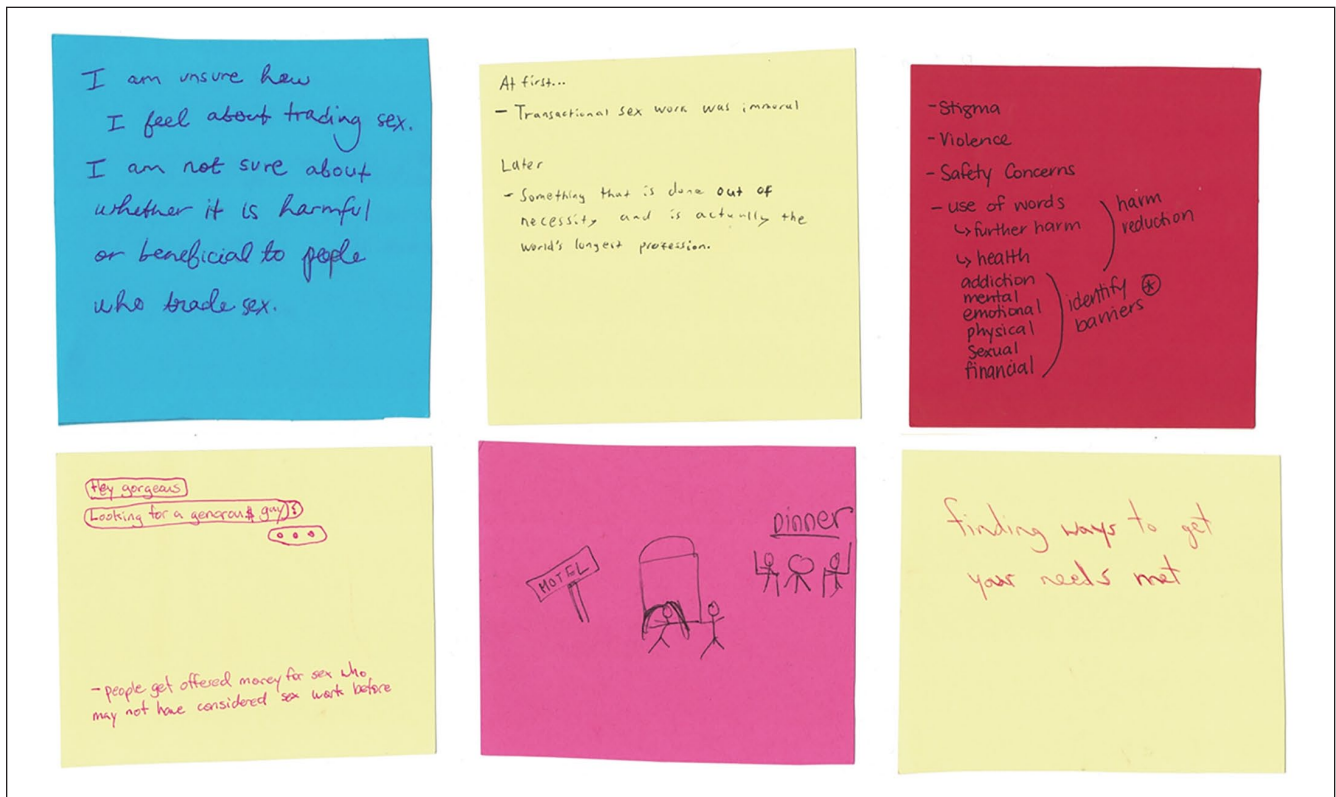 I am unsure how
I feel about trading sex.
I am not sure about
whether it is harmful
or beneficial to people
who trade sex.
At first...
- Transactional sex work was immoral
Later
- Something that is done out of
necessity and is actually the
world's longest profession.
- Stigma
- Violence
- Safety Concerns
- use of words
↳ further harm
↳ health
addiction
mental
emotional
physical
Sexual
financial
harm
reduction
identify *
barriers
Hey gorgeous
Looking for a generou$ guy
- people get offered money for sex who
may not have considered sex work before
MOTEL
Dinner
finding ways to get
your needs met